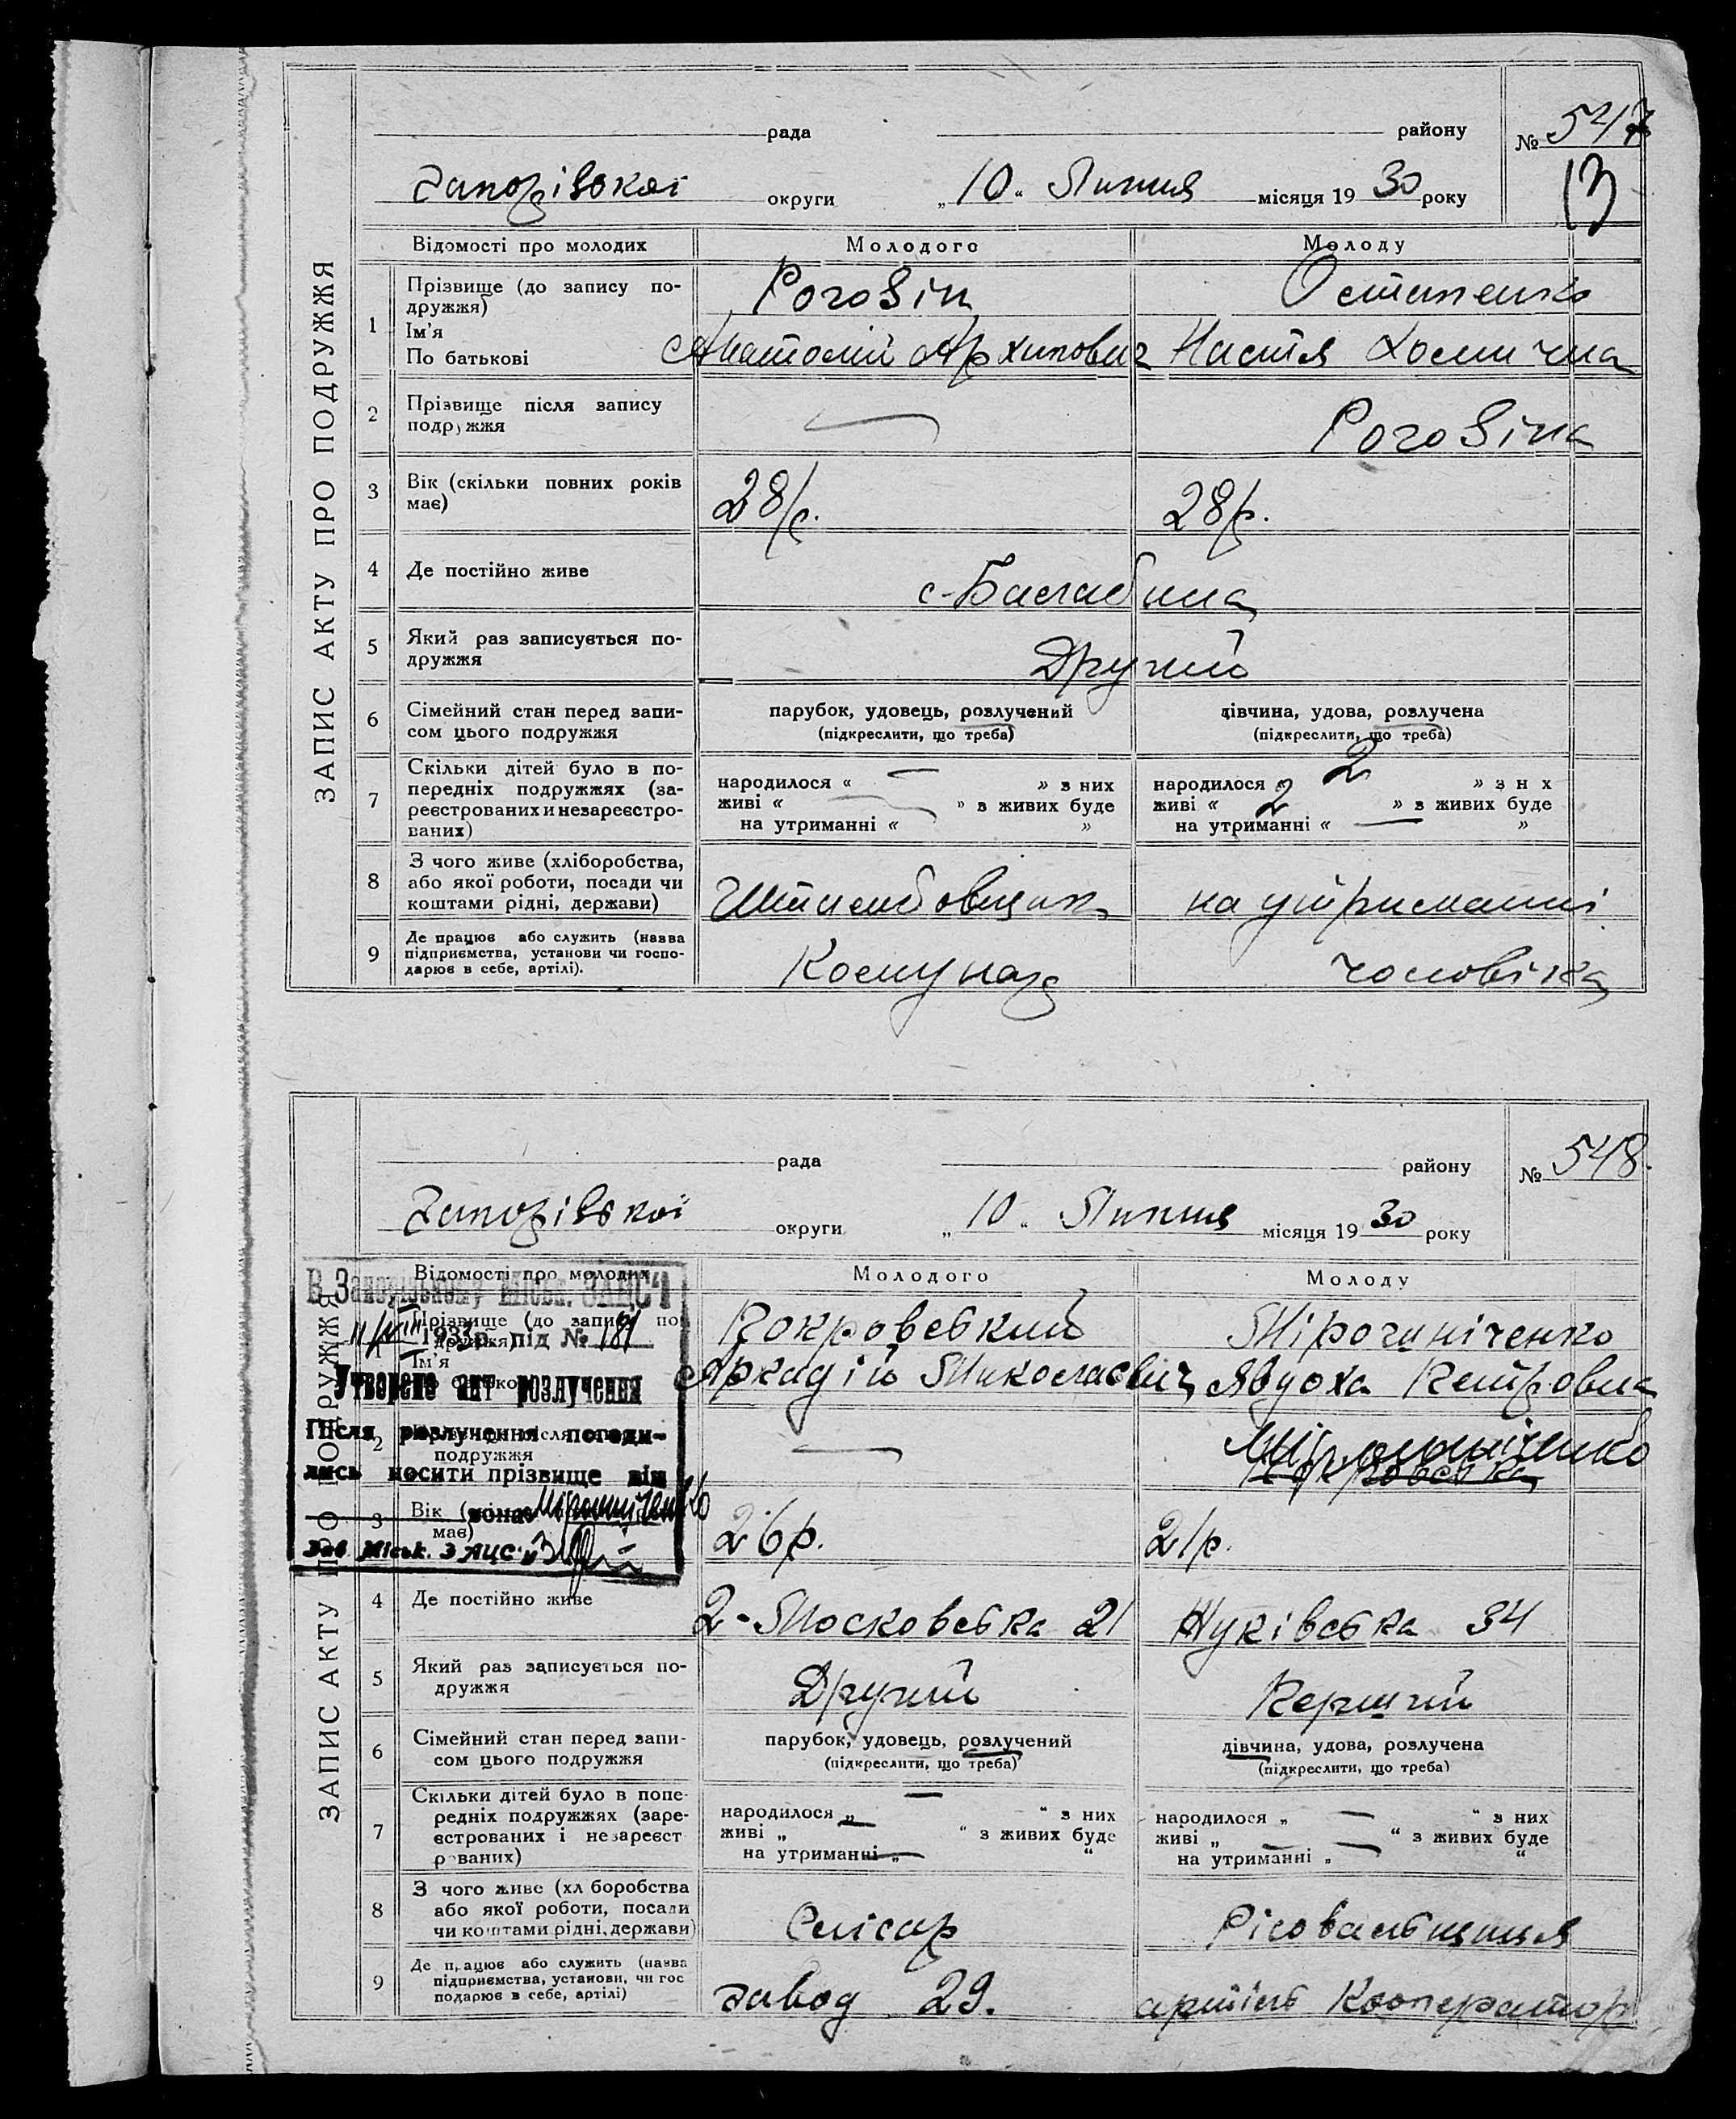 ЗАПИС АКТУ ПРО ПОДРУЖЖЯ
рада району № 547
Запорівокої округи „10“ Липня місяця 1930 року
13
Відомості про молодих Молодого Молоду
1 Прізвище (до запису по-
дружжя) Роговін Остапенко
Ім'я
По батькові Анатолій Архипович Настя Хомична
2 Прізвище після запису
подружжя — Роговіна
3 Вік (скільки повних років
має) 28 р. 28 р.
4 Де постійно живе с-Балабина
5 Який раз записується по-
дружжя Другий
6 Сімейний стан перед запи-
сом цього подружжя
парубок, удовець, розлучений дівчина, удова, розлучена
(підкреслити, що треба) (підкреслити, що треба)
7 Скільки дітей було в по-
передніх подружжях (за-
реєстрованих и незареєстро-
ваних)
народилося « — » з них народилося « 2 » з н х
живі « — » з живих буде живі « 2 » з живих буде
на утриманні « » на утриманні « — »
8 З чого живе (хліборобства,
або якої роботи, посади чи
коштами рідні, держави) на утриманні
9 Де працює або служить (назва
підприємства, установи чи госпо-
дарює в себе, артілі). Комунар чоловіка
ЗАПИС АКТУ ПРО ПОДРУЖЖЯ
рада району № 548.
Запорівокої округи „10“ Липня місяця 1930 року
Відомості про молодих Молодого Молоду
Прізвище (до запису по
дружжя) Покровський Мірошніченко
Ім'я
Аркадій Миколаєвич Явдоха Петровна
В Запорізькому Міськ. ЗАЦС'І
11/VIII 1933 р. під № 181
Утворено акт розлучення
Після розлучення погоди-
лись носити прізвище він
вона Мірошніченко
Зав Міськ. ЗАЦС
2 подружжя — Мірошніченко
Покровська
3 Вік
має) 26 р. 21 р.
4 Де постійно живе 2-Московська 21 Жуківська 34
5 Який раз записується по-
дружжя Другий Перший
6 Сімейний стан перед запи-
сом цього подружжя
парубок, удовець, розлучений дівчина, удова, розлучена
(підкреслити, що треба) (підкреслити, що треба)
7 Скільки дітей було в попе-
редніх подружжях (заре-
єстрованих і незареєст
рованих)
народилося „ — “ з них народилося „ — “ з них
живі „ — “ з живих буде живі „ — “ з живих буде
на утриманні „ — “ на утриманні „ — “
8 З чого живе (хл боробства
або якої роботи, посади
чи коштами рідні, держави) Слісар Рісовальщиця
9 Де працює або служить (назва
підприємства, установи, чи гос
подарює в себе, артілі) завод 29. артіль Кооператор